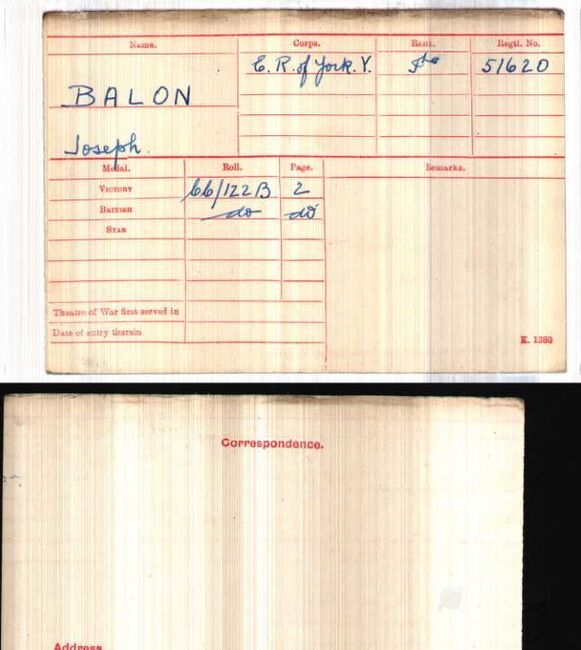 Name. Corps. Rank. Regtl. No.
E. R. of York. Y. Pte 51620
BALON
Joseph.
Medal. Roll. Page. Remarks.
VICTORY 66/122B 2
BRITISH do do
STAR
Theatre of War first served in
Date of entry therein
K. 1380
Correspondence.
Address